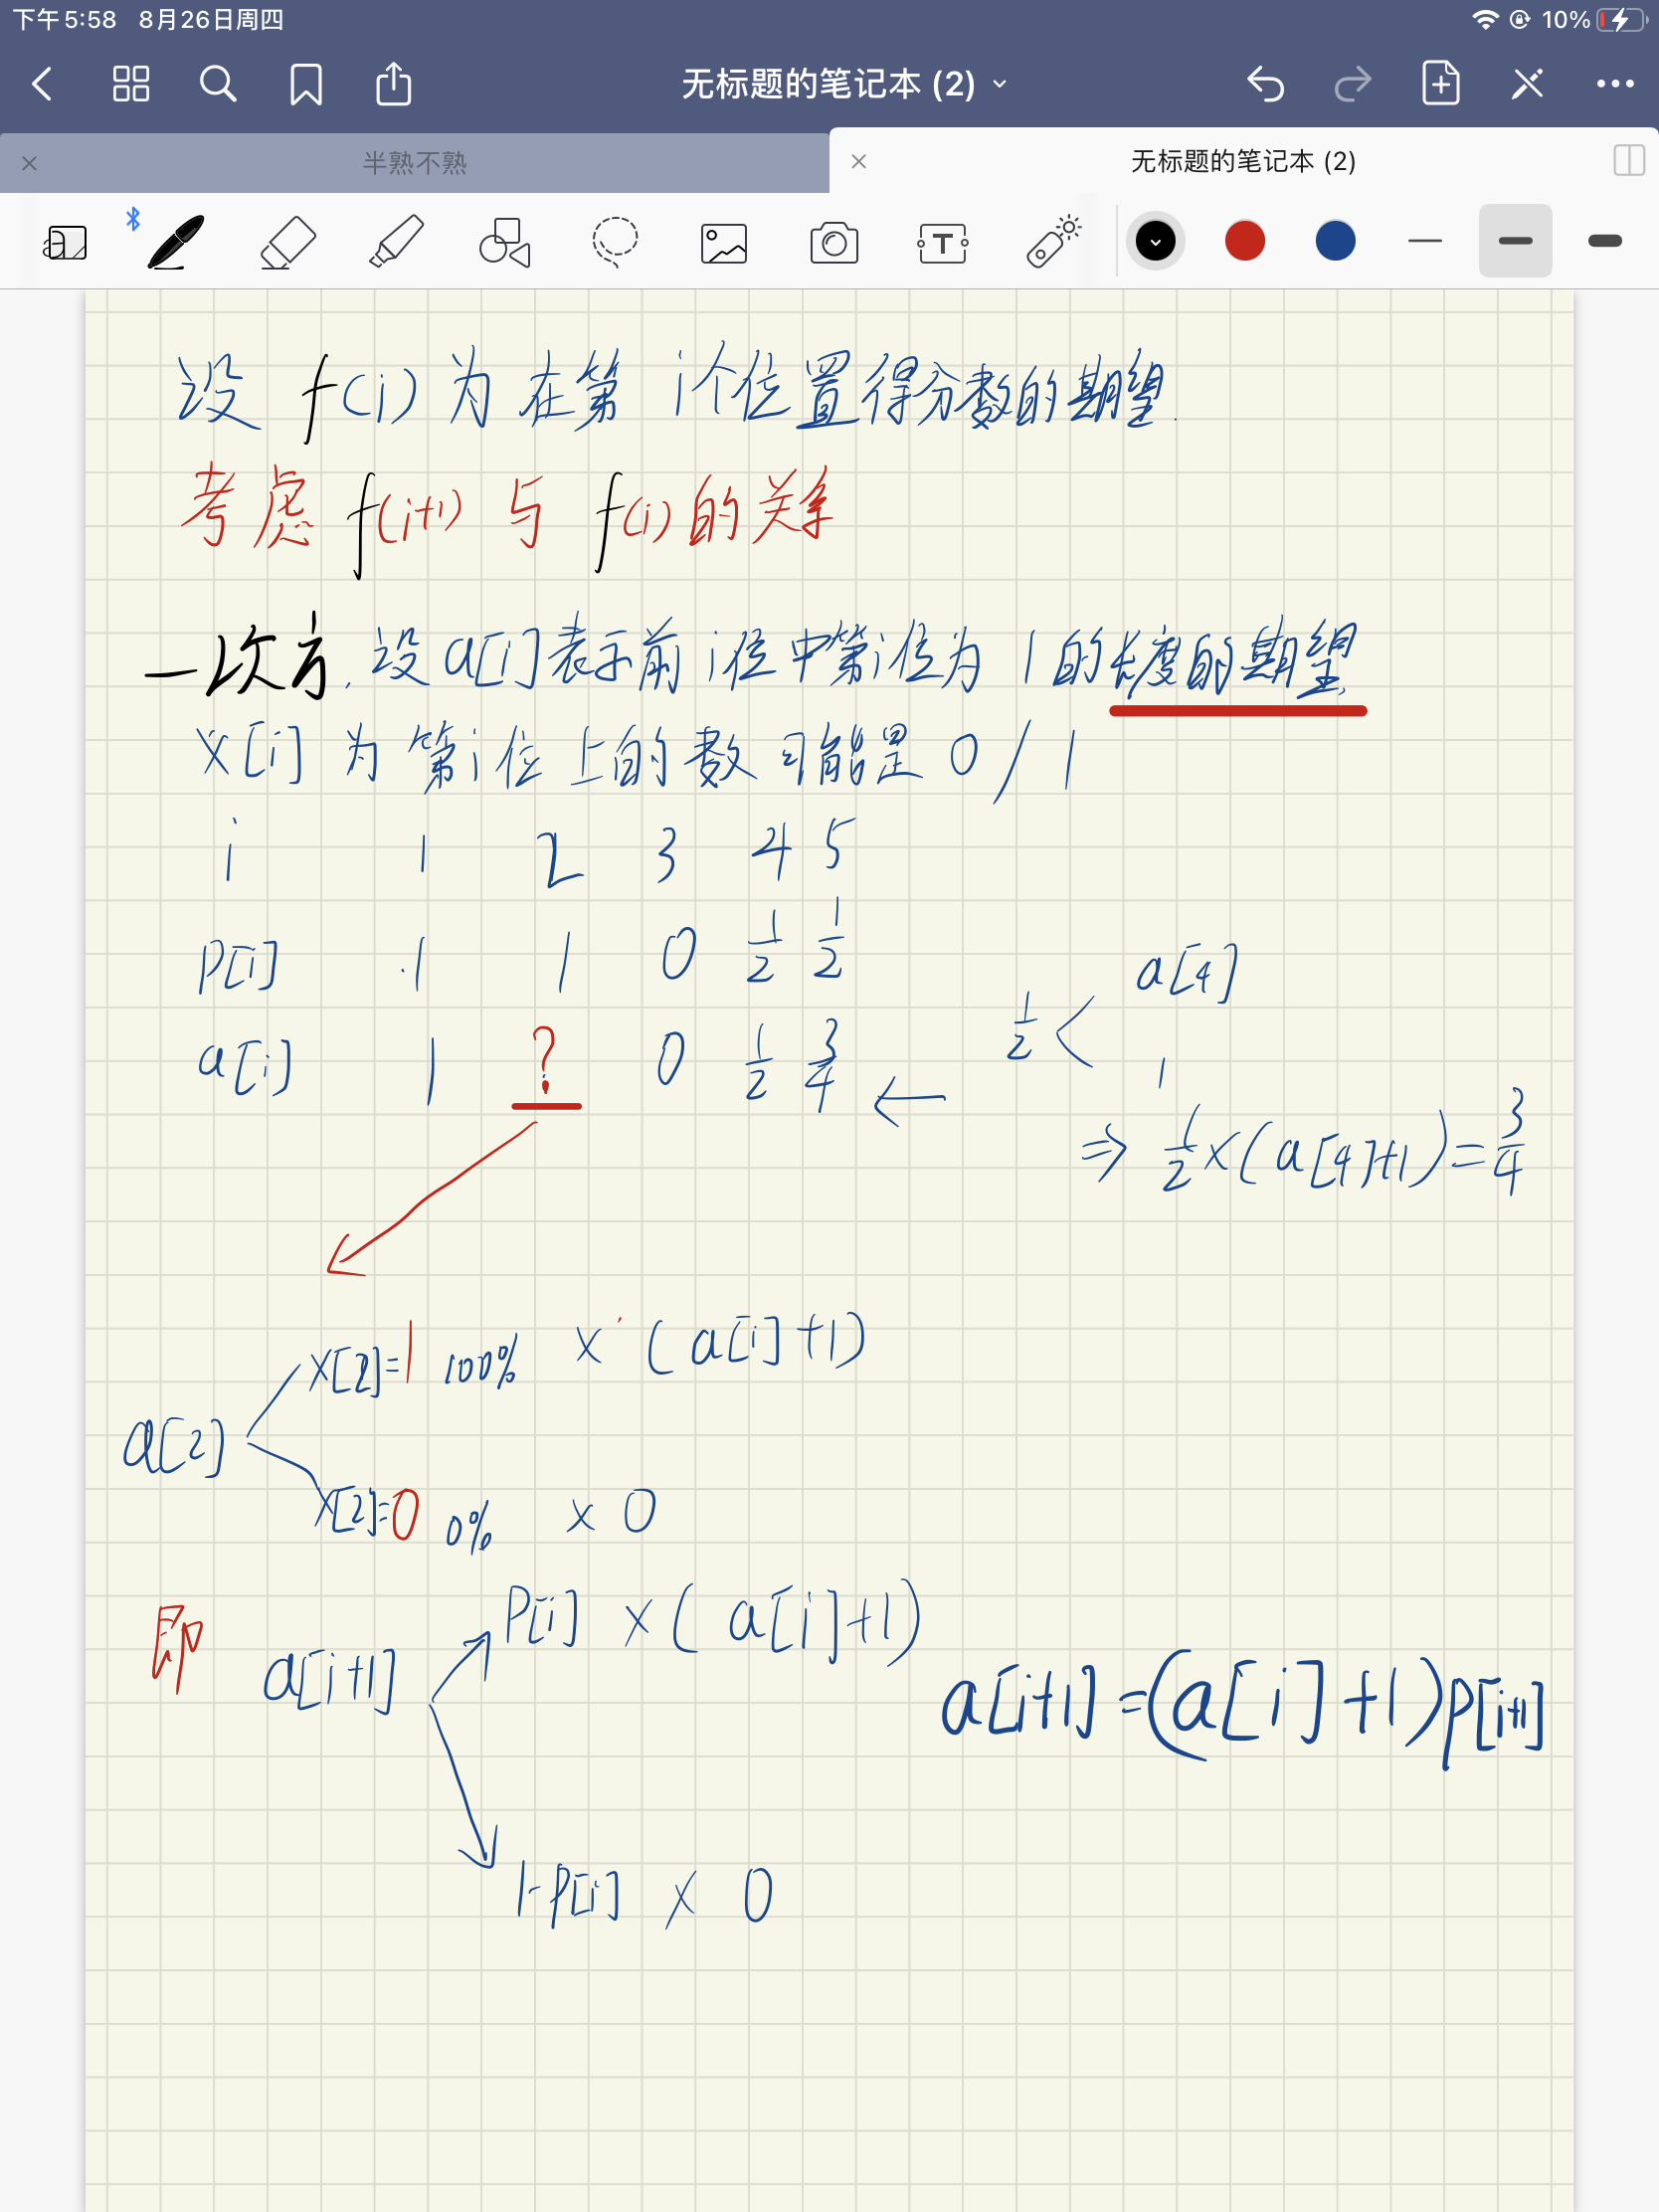 下午5:58 8月26日周四
10%
无标题的笔记本 (2)
半熟不熟
无标题的笔记本 (2)
设 f(i) 为在第 i个位置得分数的期望.
考虑 f(i+1) 与 f(i) 的关系
一次方. 设a[i]表示前i位中第i位为1的长度的期望.
X[i] 为第i位上的数可能是 0/1
i 1 2 3 4 5
P[i] 1 1 0 1/2 1/2
a[i] 1 ? 0 1/2 3/4 ←
1/2 < a[4]
1
⇒ 1/2×(a[4]+1)=3/4
X[2]=1 100% × (a[i]+1)
a[2]
X[2]=0 0% × 0
即 a[i+1]
P[i] ×( a[i]+1)
a[i+1]=(a[i]+1)P[i+1]
1-P[i] × 0